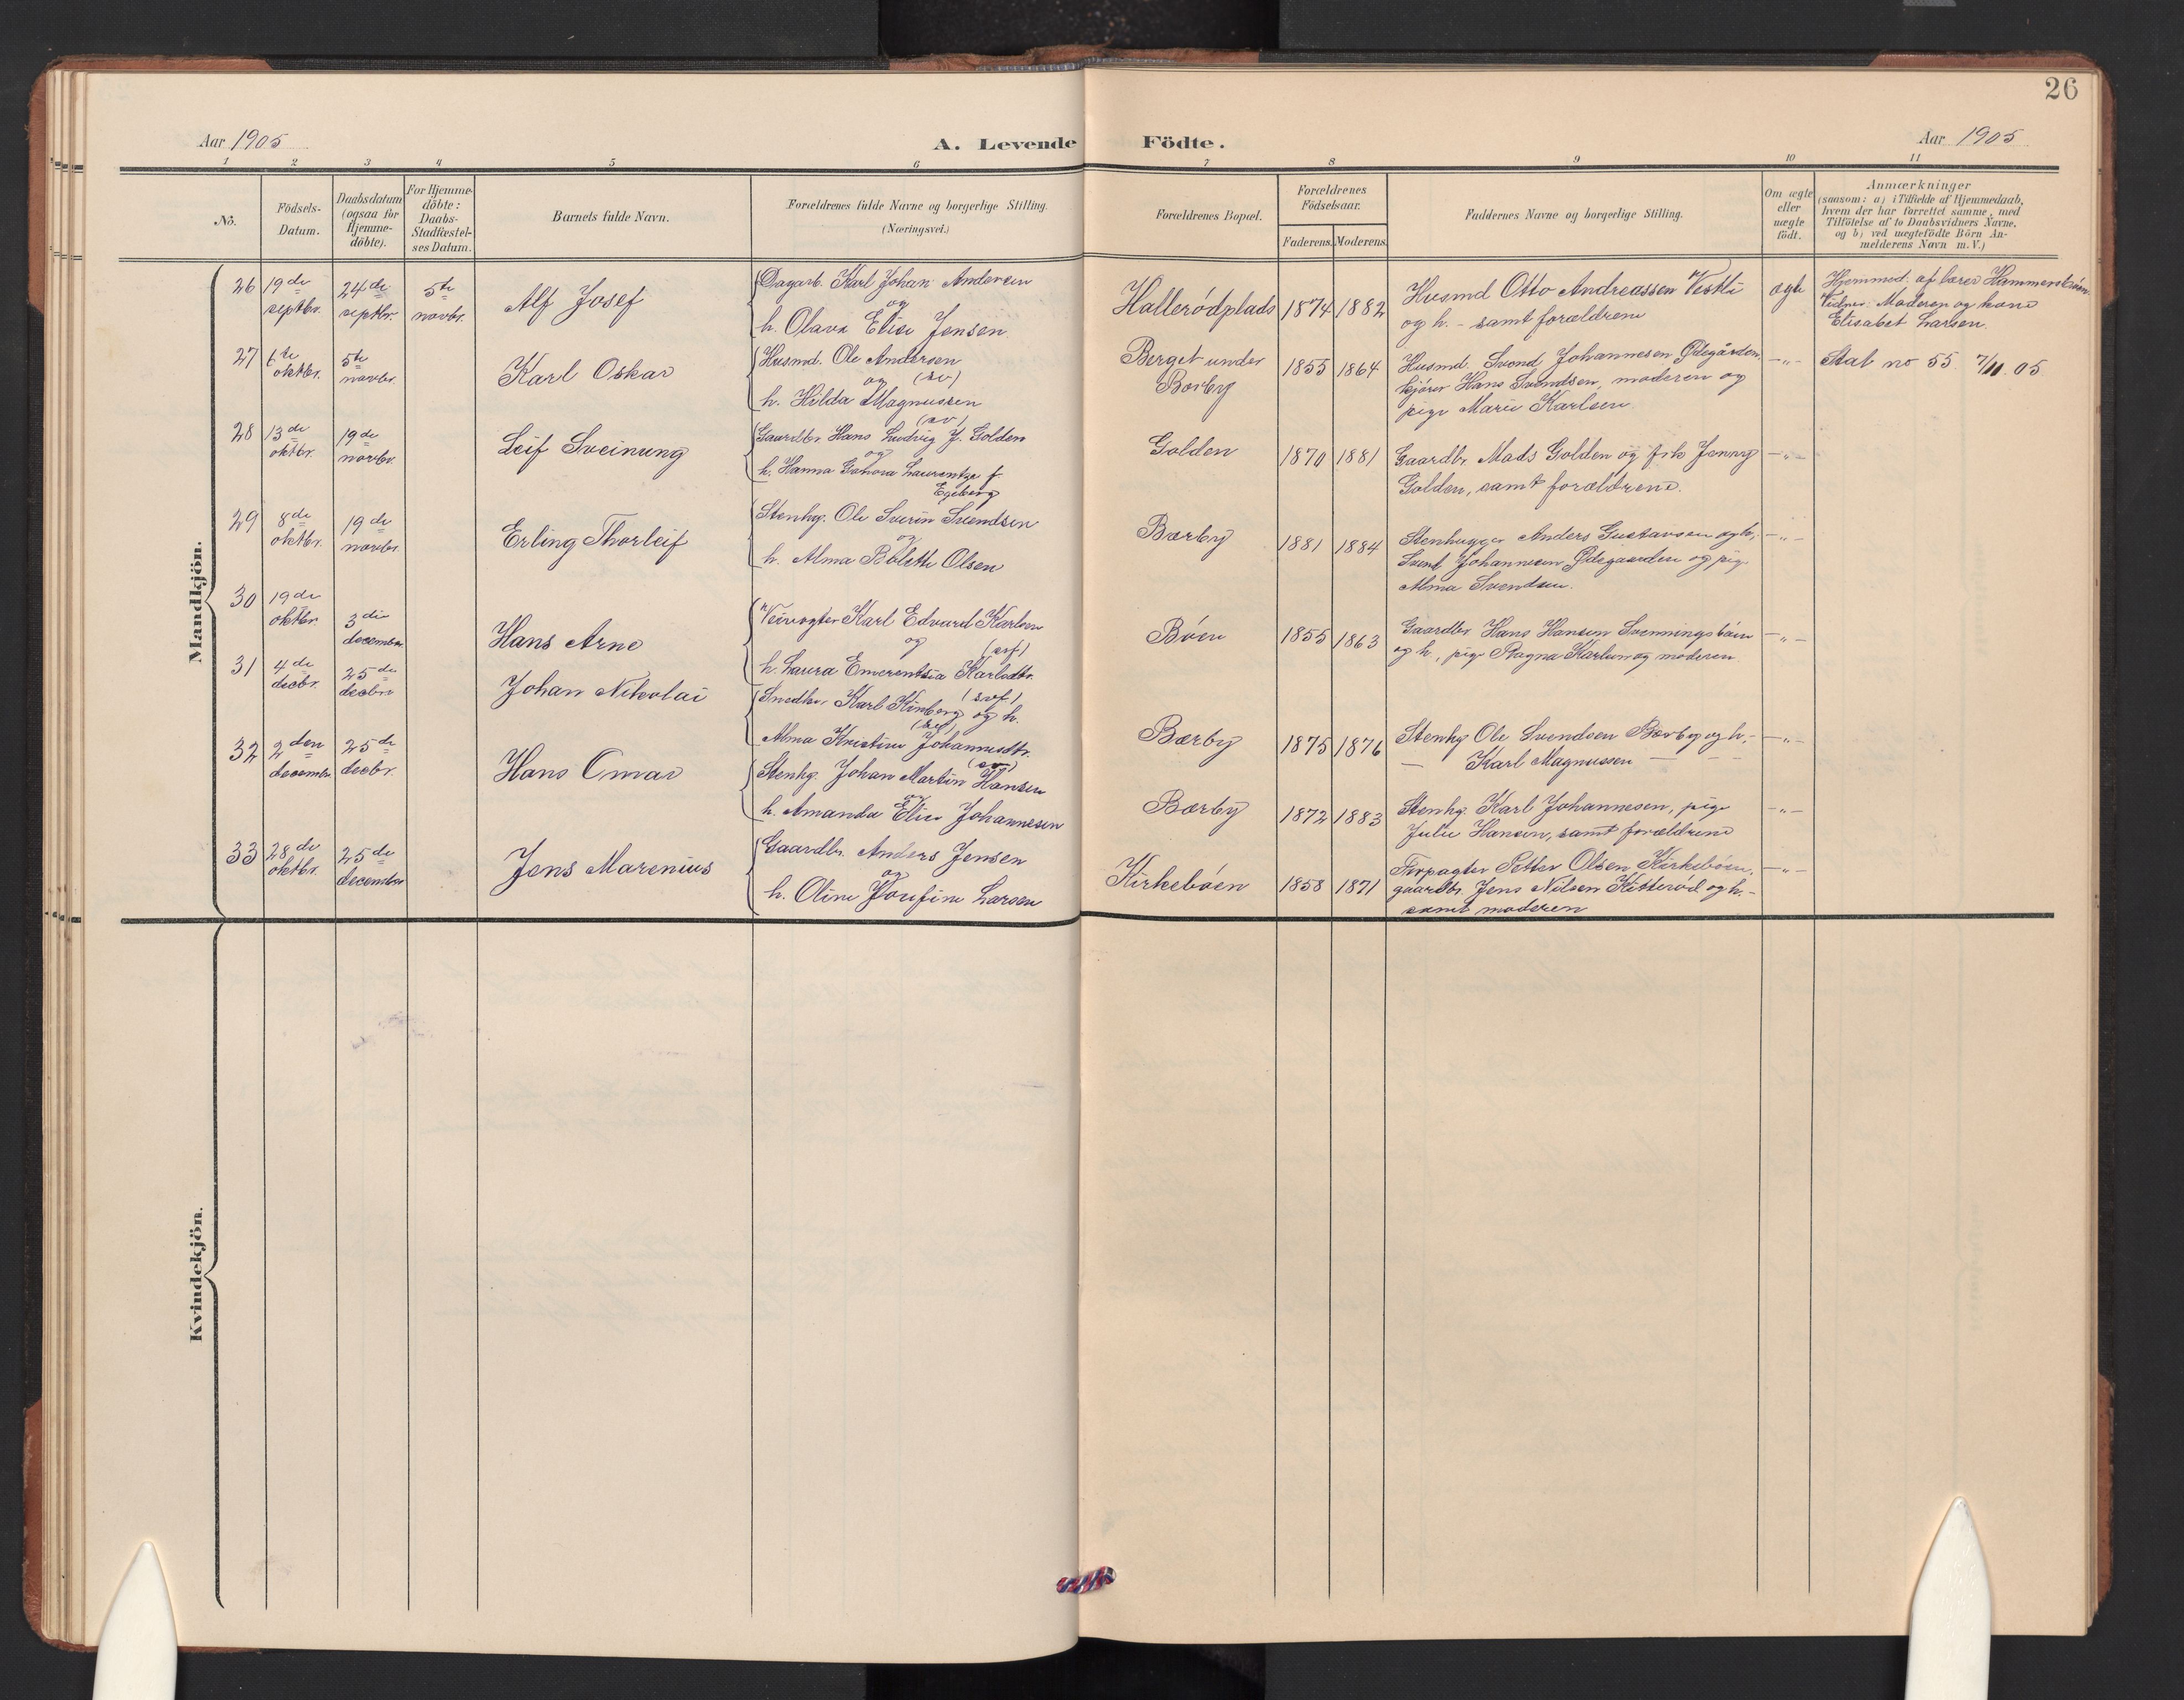 26
Aar 1905
A. Levende Födte.
Aar 1905
1 2 3 4 5 6 7 8 9 10 11
Nô.
Födsels-Datum.
Daabsdatum (ogsaa for Hjemme-döbte).
For Hjemme-döbte: Daabs-Stadfæstel-ses Datum.
Barnets fulde Navn.
Forældrenes fulde Navne og borgerlige Stilling. (Næringsvei.)
Forældrenes Bopæl.
Forældrenes Födselsaar.
Faderens. Moderens.
Faddernes Navne og borgerlige Stilling.
Om ægte eller uægte födt.
Anmærkninger
(saasom: a) i Tilfælde af Hjemmedaab,
hvem der har forrettet samme, med
Tilföielse af to Daabsvidners Navne,
og b) ved uægtefödte Börn An-
melderens Navn m. V.)
Mandkjön.
26 19de septbr. 24de septbr. 5te novbr. Alf Josef
Dagarb. Karl Johan Andersen
og
h. Olava Elise Jensen
Hallerødplads 1874 1882
Husmd Otto Andreassen Vestli
og h. - samt forældrene
ægte
Hjemmed. af lærer
Vidner: Moderen og kone
Elisabet Larsen.
27 6te oktbr. 5te novbr. Karl Oskar
Husmd. Ole Andersen
og
h. Hilda Magnussen
Berget under
Bærby
1855 1864
Husmd. Svend Johannesen Ødegården,
kjører Hans Svendsen, moderen og
pige Marie Karlsen
-"-
Stat no 55 7/11.05
28 13de oktbr. 19de novbr. Leif Sveinung
Gaardbr. Hans Ludvig J. Golden
og
h. Hanna Laurentze f.
Egeberg
Golden 1870 1881
Gaardbr. Mads Golden og frk Jenny
Golden, samt forældrene.
-"-
29 8de oktbr. 19de novbr. Erling Thorleif
Stenhg. Ole Severin Svendsen
og
h. Alma Bolette Olsen
Bærby 1881 1884
Stenhugger Anders Gustavsen og h,
Svend Johannesen Ødegaarden og pige
Alma Svendsen.
-"-
30 19de oktbr. 3die december Hans Arne
Veivogter Karl Edvard Karlsen
og
h. Laura Emerentsia Karlsdtr.
Bøen 1855 1863
Gaardbr Hans Hansen Svenningsbøen
og h, pige Ragna Karlsen og moderen
-"-
31 4de decbr. 25de decbr. Johan Nikolai
Snedker Karl Kinberg og h.
Alma Kristine Johannesdtr.
Bærby 1875 1876
Stenhg Ole Svendsen Bærby og h,
— Karl Magnussen —
-"-
32 2den decembr. 25de decbr. Hans Omar
Stenhg. Johan Martin Hansen
og
h. Amanda Elise Johannesen
Bærby 1872 1883
Stenhg. Karl Johannesen, pige
Julie Hansen, samt forældrene
-"-
33 28de oktbr. 25de december Jens Marenius
Gaardbr. Anders Jensen
og
h. Oline Josefine Larsen
Kirkebøen 1858 1871
Forpagter Petter Olsen Kirkebøen,
gaardbr. Jens Nilsen Ketterød og h.-
samt moderen
-"-
Kvindekjön.